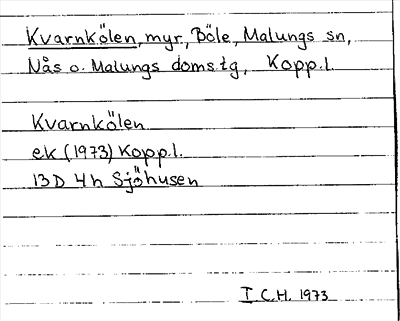 Kvarnkölen, myr, Böle, Malungs sn,
Nås o. Malungs doms.tg, Kopp.l.
Kvarnkölen
ek (1973) Kopp.l.
13D 4h Sjöhusen
I C.H. 1973